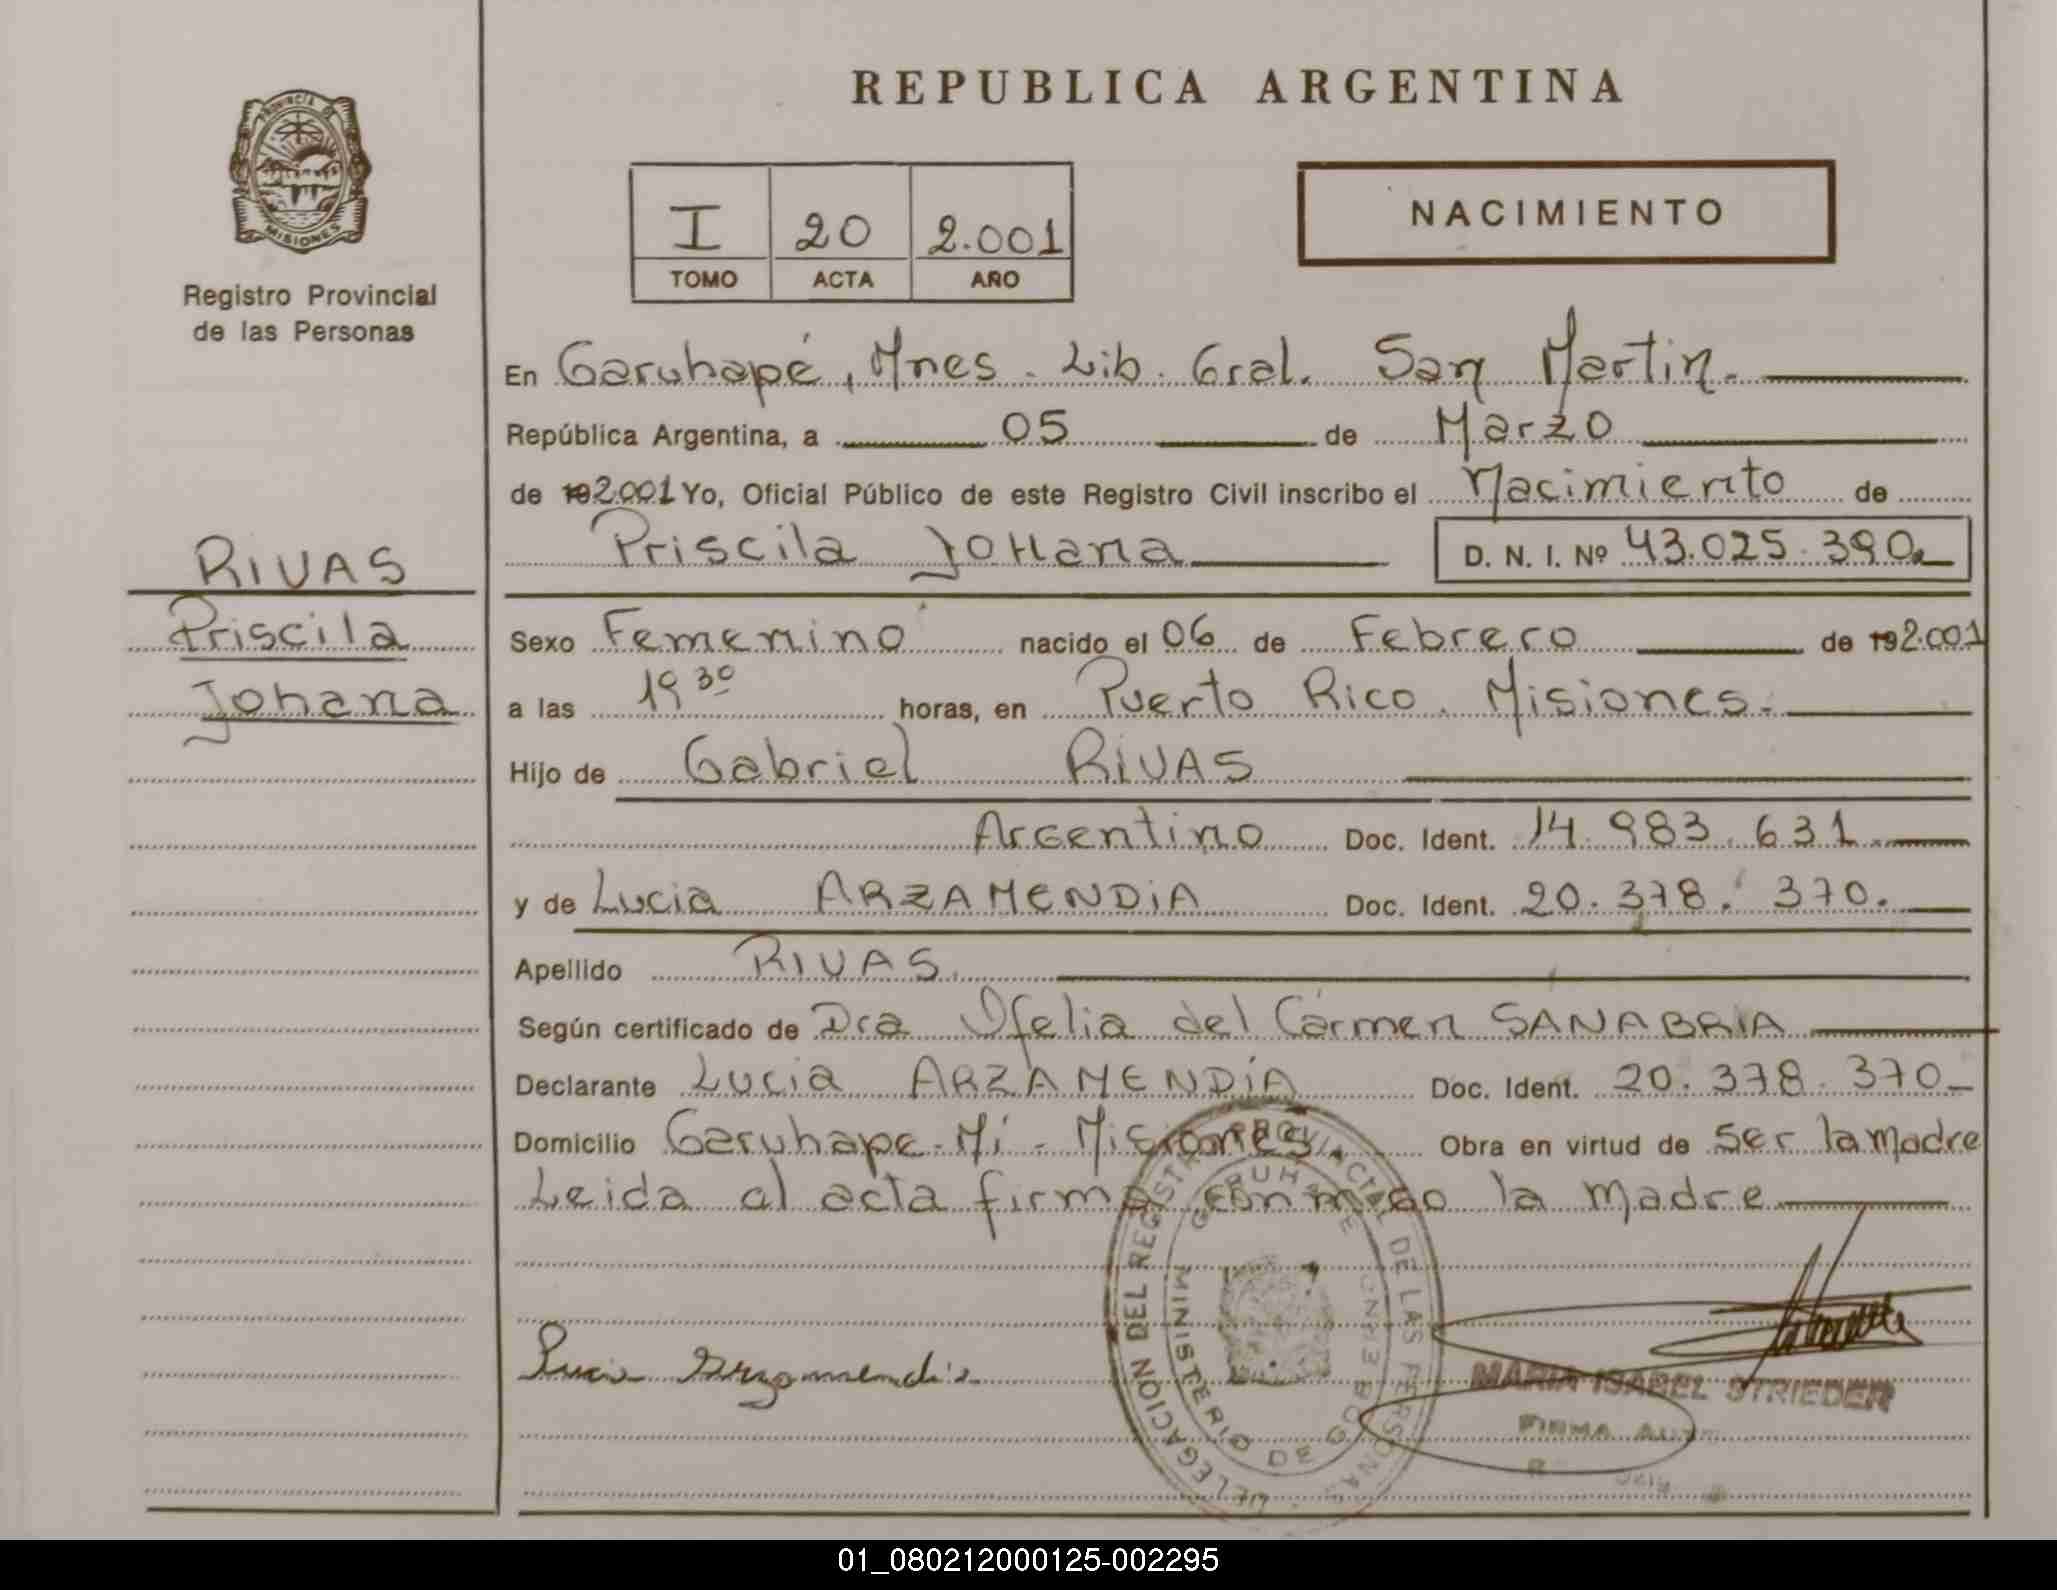 REPUBLICA ARGENTINA
PROVINCIA DE
MISIONES
Registro Provincial
de las Personas
I 20 2.001
TOMO ACTA AÑO
NACIMIENTO
En Garuhapé, Mnes. Lib. Gral. San Martin.
República Argentina, a 05 de Marzo
de 192.001 Yo, Oficial Público de este Registro Civil inscribo el Nacimiento de
Priscila JoHana D. N. I. Nº 43.025.390
RIVAS
Priscila
Johana
Sexo Femenino nacido el 06 de Febrero de 192.001
a las 19 30 horas, en Puerto Rico. Misiones.
Hijo de Gabriel RIVAS
Argentino Doc. Ident. 14.983.631.
y de Lucia ARZAMENDIA Doc. Ident. 20.378.370.
Apellido RIVAS.
Según certificado de Dra Ofelia del Carmen SANABRIA
Declarante Lucia ARZAMENDÍA Doc. Ident. 20.378.370
Domicilio Garuhape-Mí - Misiones. Obra en virtud de Ser la madre
Leida al acta firma conmigo la madre
DELEGACION DEL REGISTRO PROVINCIAL DE LAS PERSONAS
GARUHAPE
MINISTERIO DE GOBIERNO
Lucia Arzamendia
MARIA ISABEL STRIEDER
FIRMA
01_080212000125-002295